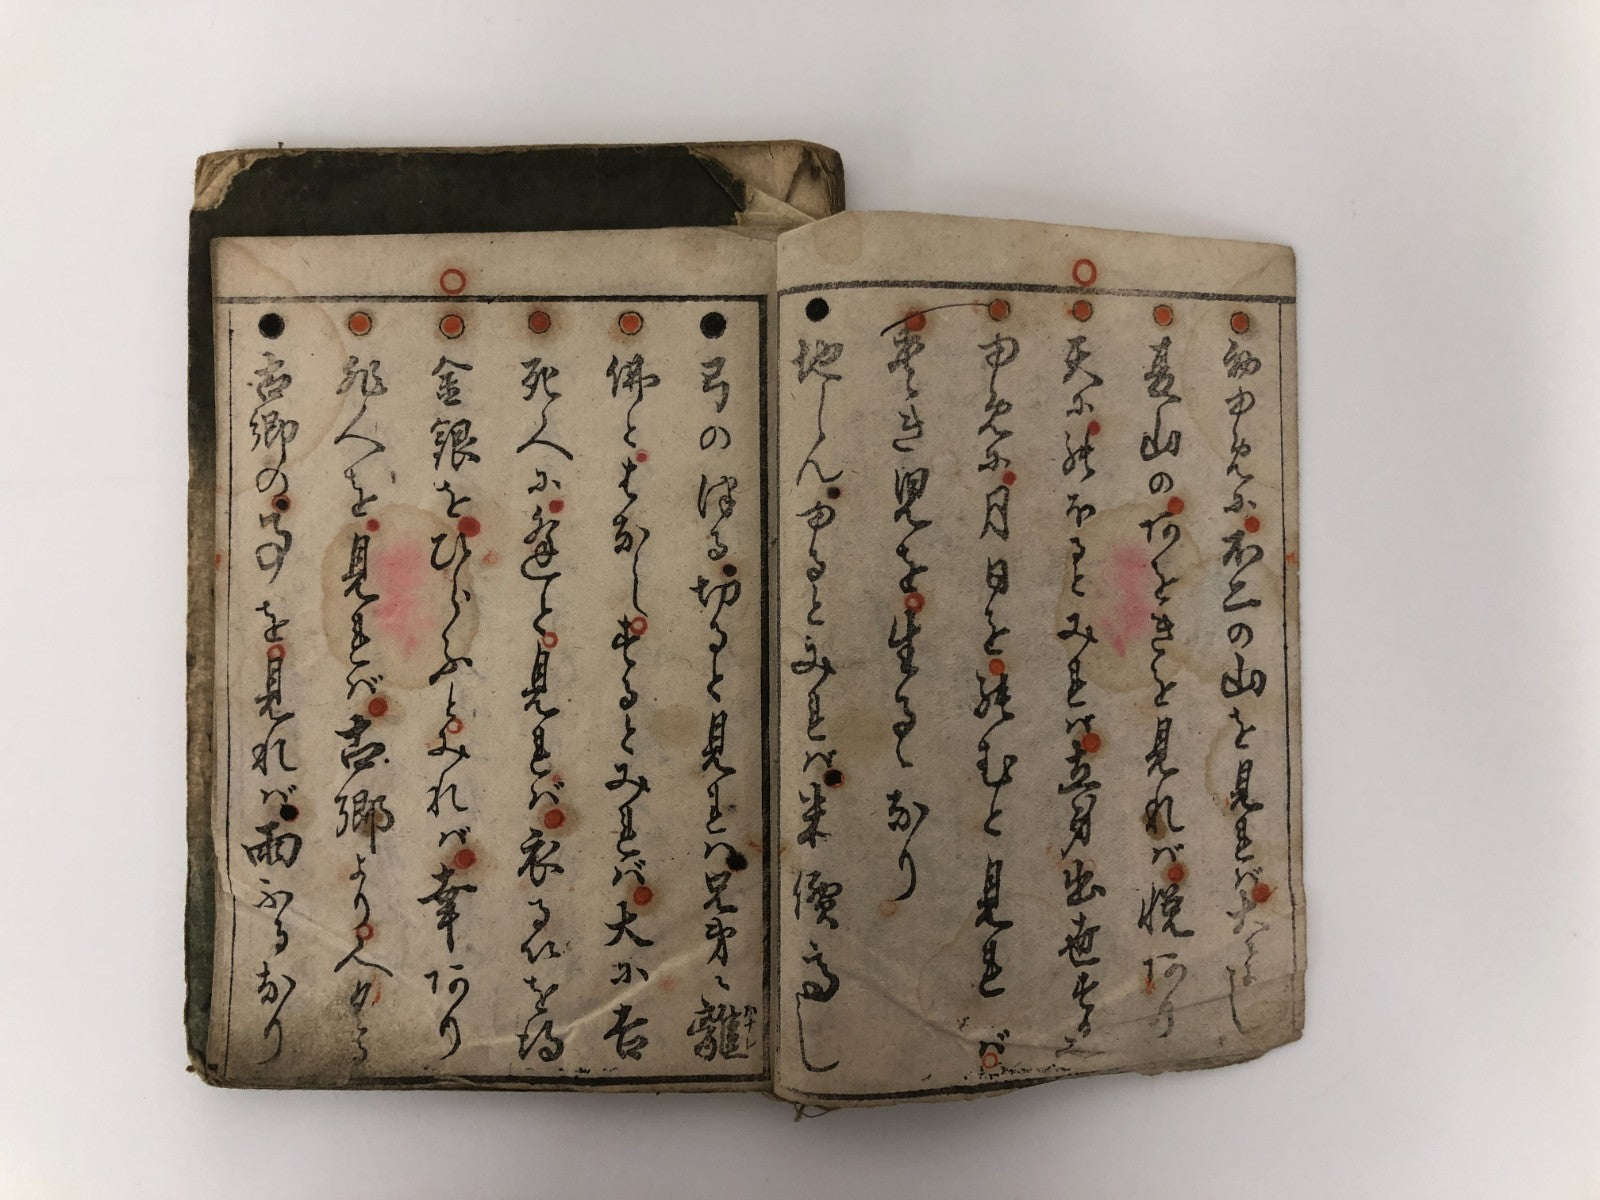 初ゆめに不二の山を見れば大によし
高山のいたゞきを見れば悦あり
天にのぼるとみれば立身出世する
ゆめに月日を呑むと見れば
たつとき児を生るゝなり
地しんゆるとみれば米價高し
弓のつる切ると見れば兄弟に離
佛とはなしするとみれば大に吉
死人に逢と見れば衣るいを得
金銀をひらふとみれば幸あり
死人を見れば古郷より人きたる
古郷の事を見れば雨ふるなり